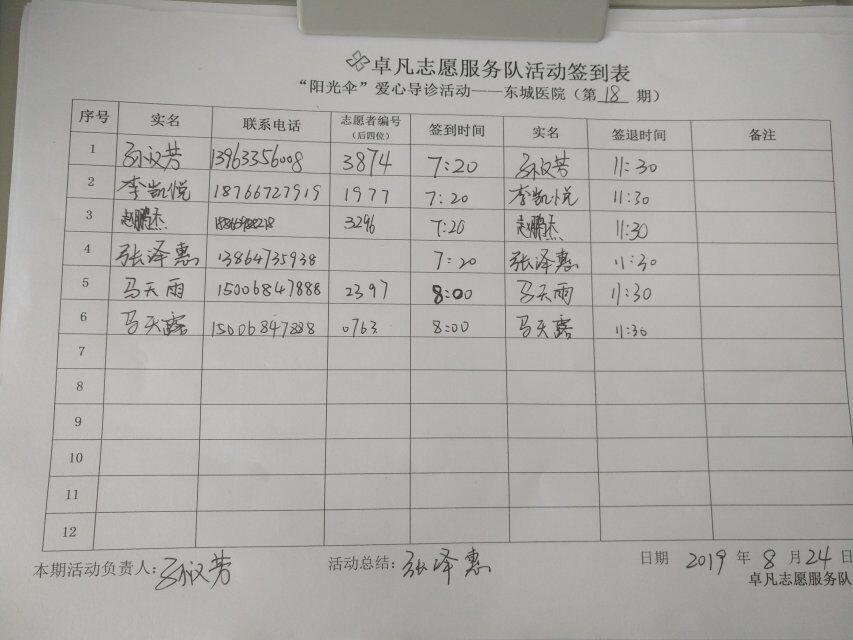 卓凡志愿服务队活动签到表
“阳光伞”爱心导诊活动——东城医院（第 18 期）
序号 实名 联系电话 志愿者编号（后四位） 签到时间 实名 签退时间 备注
1 孙议芳 13963356008 3874 7:20 孙议芳 11:30
2 李凯悦 18766727919 1977 7:20 李凯悦 11:30
3 赵鹏杰 3296 7:20 赵鹏杰 11:30
4 张泽惠 13864735938 7:20 张泽惠 11:30
5 马天雨 15006847888 2397 8:00 马天雨 11:30
6 马天露 15006847888 0763 8:00 马天露 11:30
7
8
9
10
11
12
本期活动负责人：孙议芳 活动总结：张泽惠 日期 2019 年 8 月 24 日
卓凡志愿服务队